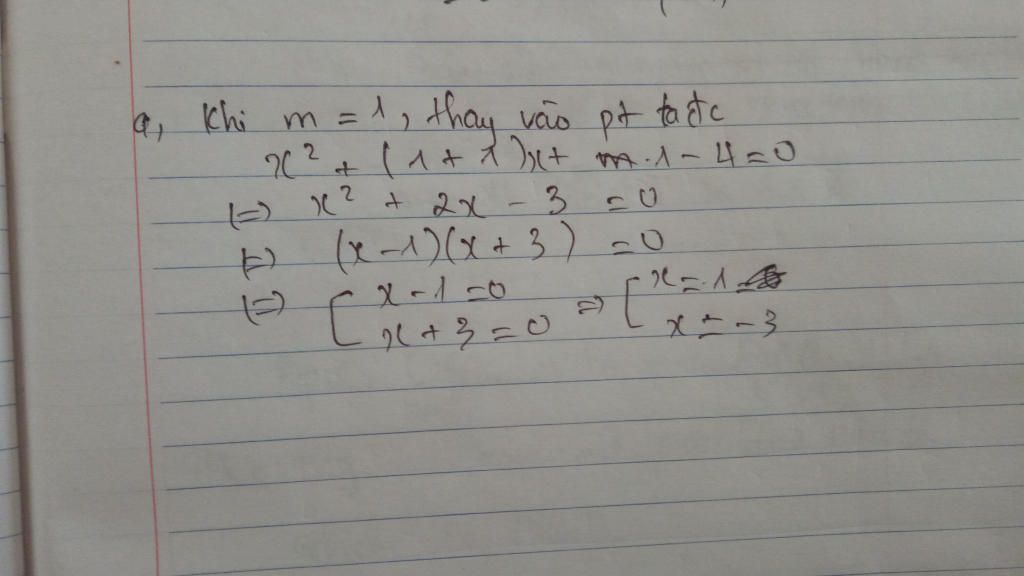 a, Khi m = 1, thay vào pt ta đc
x² + (1 + 1)x + m.1 - 4 = 0
(=) x² + 2x - 3 = 0
(=) (x - 1)(x + 3) = 0
(=) [ x - 1 = 0 => [ x = 1
x + 3 = 0 x = -3